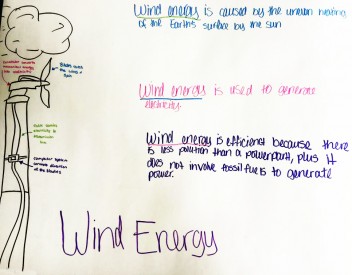 Wind energy is caused by the uneven heating
of the Earth's surface by the sun
Blades catch the wind & spin
Wind energy is used to generate
electricity.
Wind energy is efficient because there
is less pollution than a powerplant, plus it
does not involve fossil fuels to generate
power.
computer system
controls direction
of the blades
Wind Energy